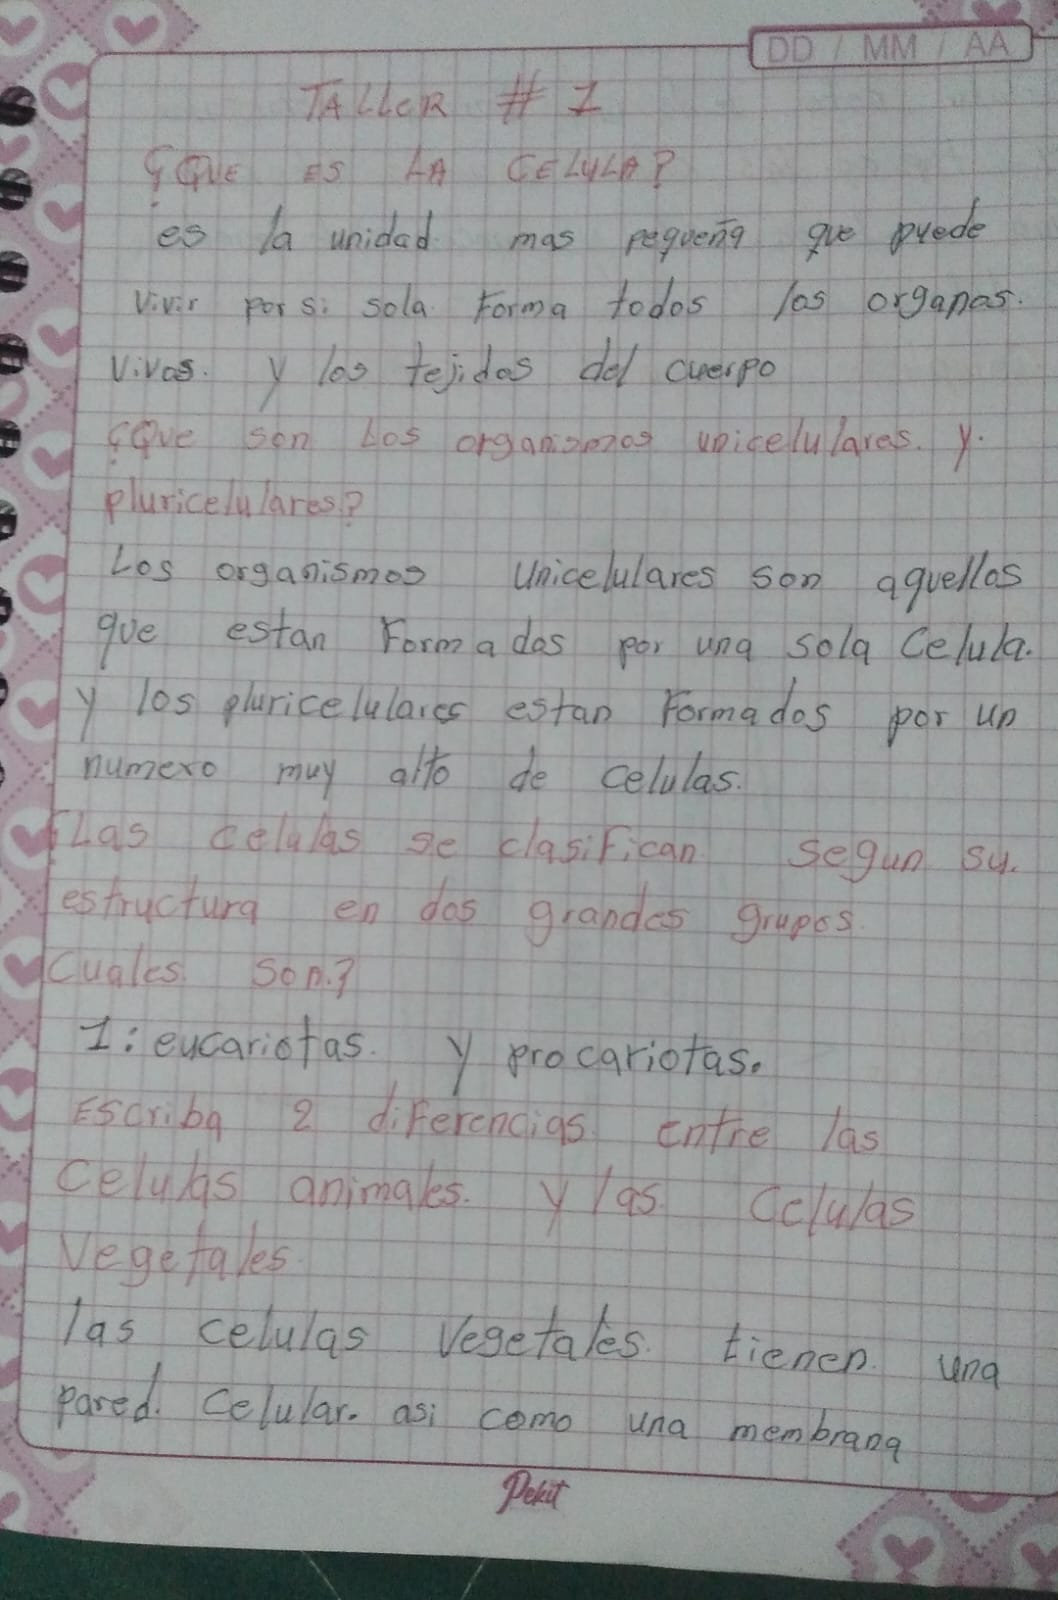 DD / MM / AA
TALLER # 1
¿QUE ES LA CELULA?
es la unidad mas pequeña que puede
vivir por si sola. Forma todos los organos.
vivos. y los tejidos del cuerpo
¿Que son Los organismos unicelulares. y.
pluricelulares?
Los organismos Unicelulares son aquellos
que estan Formados por una sola Celula.
y los pluricelulares estan Formados por un
numero muy alto de celulas.
¿Las celulas se clasifican segun su.
estructura en dos grandes grupos.
Cuales son.?
1: eucariotas. y procariotas.
Escriba 2 diferencias entre las
Celulas animales. y las Celulas
Vegetales.
las celulas Vegetales. tienen una
pared. Celular. asi como una membrana
Pekit